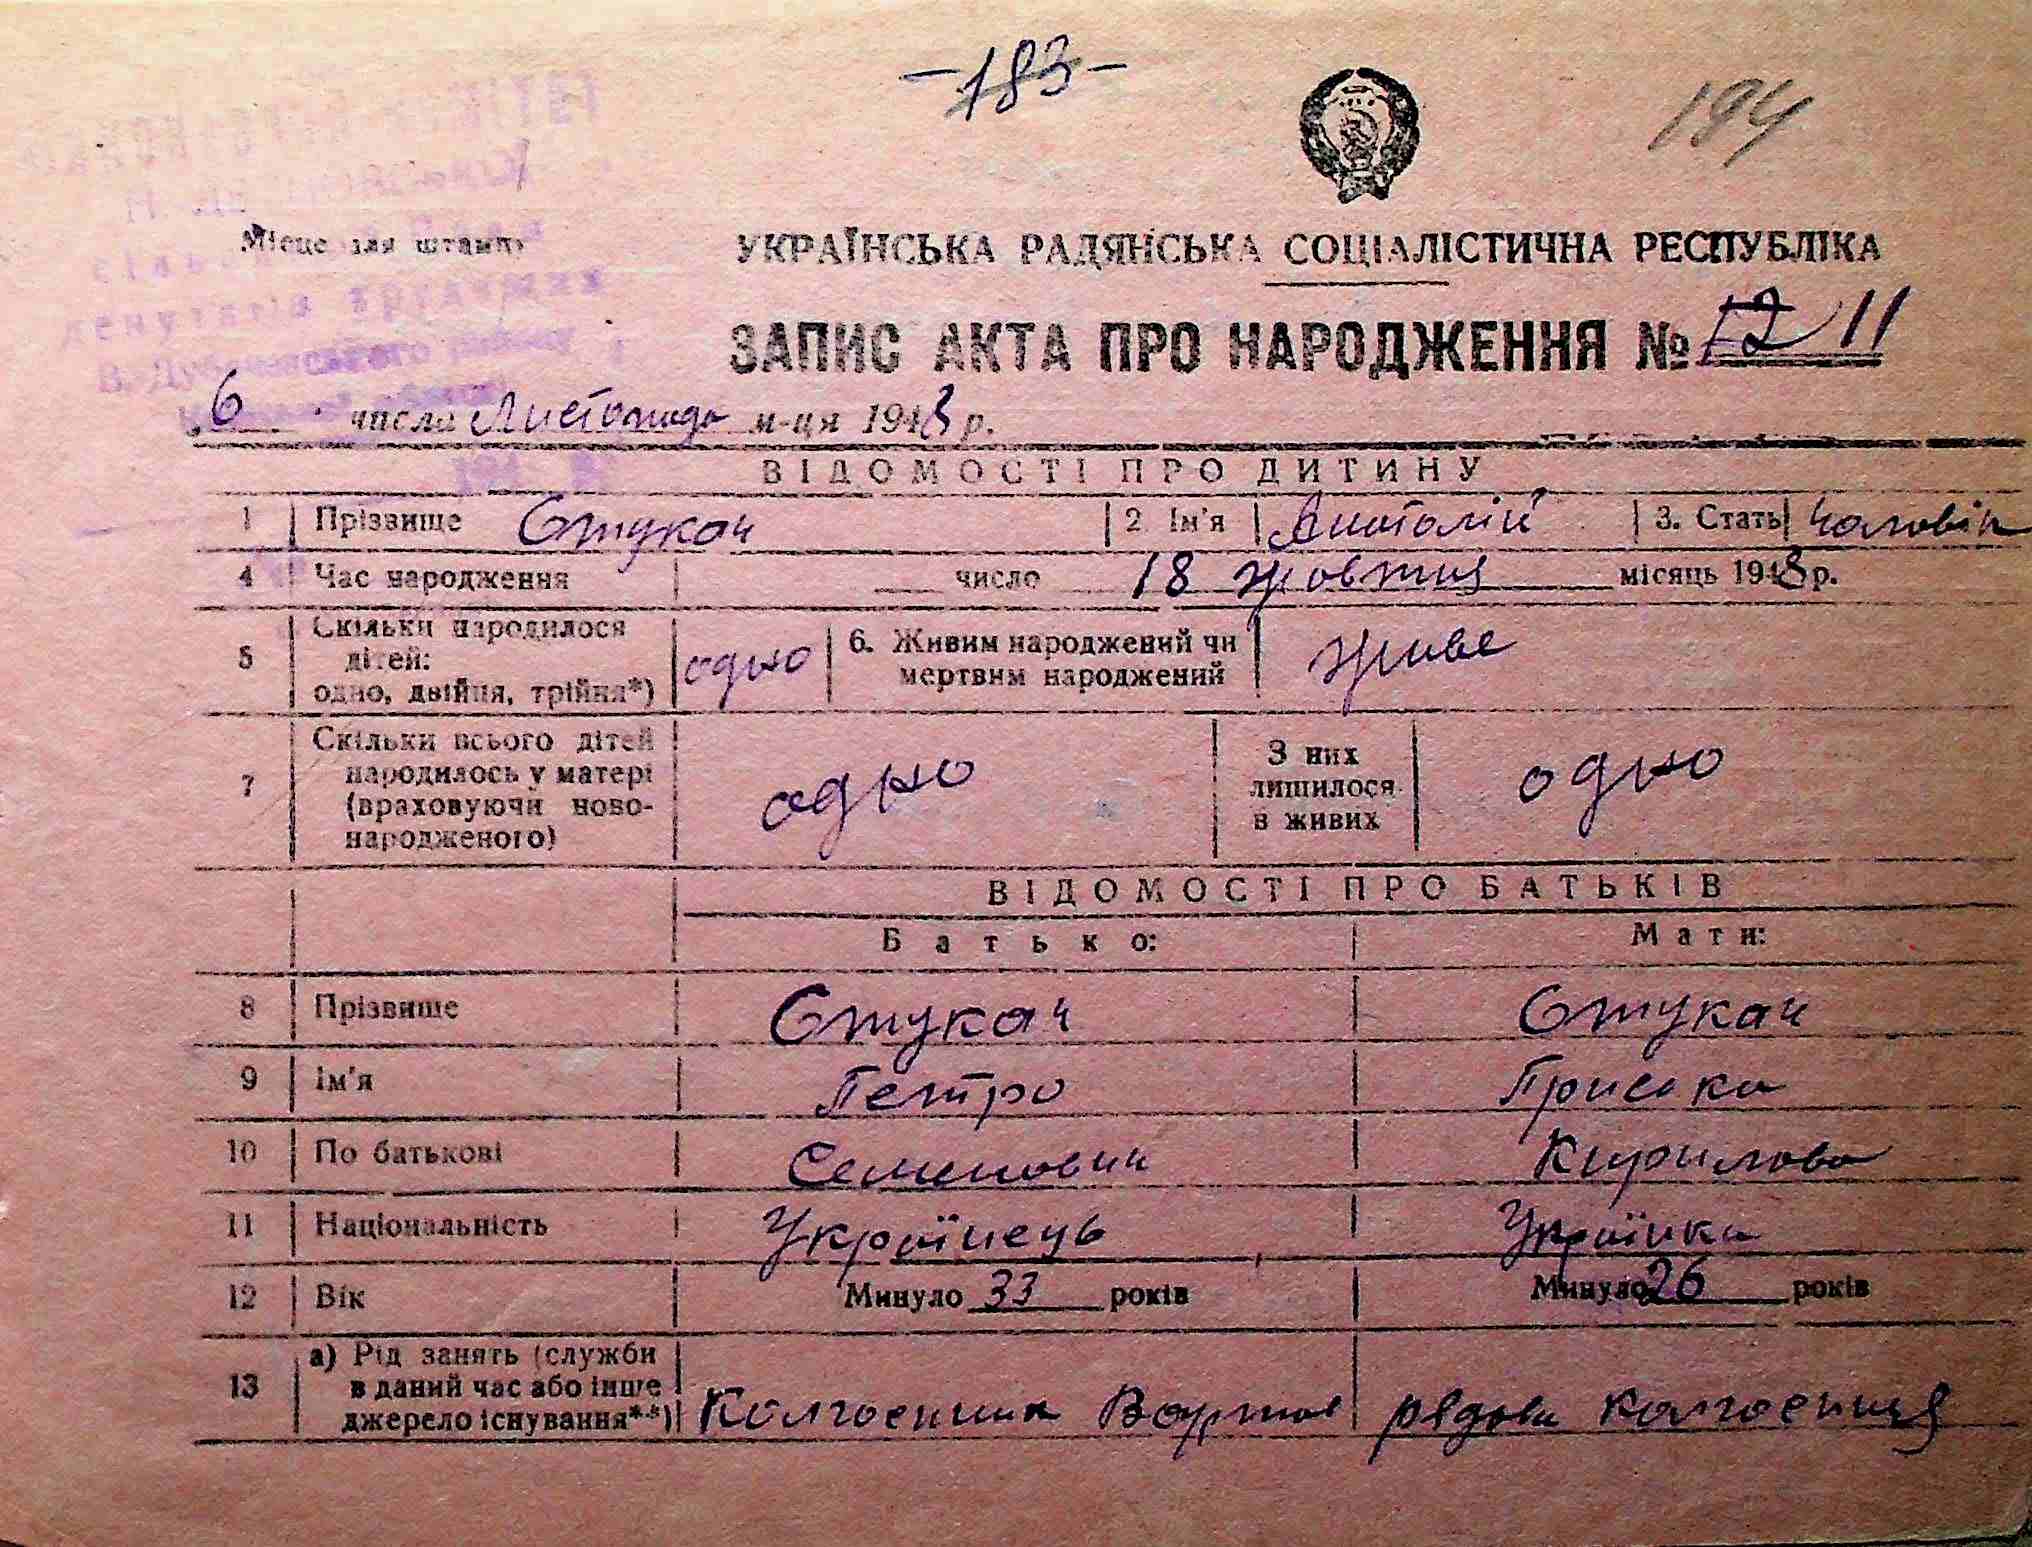 -183-
194
Місце для штампу
сільської Ради
депутатів трудящих
В. Дубечанського району
УКРАЇНСЬКА РАДЯНСЬКА СОЦІАЛІСТИЧНА РЕСПУБЛІКА
ЗАПИС АКТА ПРО НАРОДЖЕННЯ № 12 11
„6 числа Листопада м-ця 1943 р.
ВІДОМОСТІ ПРО ДИТИНУ
1 Прізвище Стукач 2 Ім'я Анатолій 3. Стать Чоловіч
4 Час народження число 18 жовтня місяць 1943 р.
5 Скільки народилося дітей: одно, двійня, трійня*) одно 6. Живим народжений чи мертвим народжений живе
7 Скільки всього дітей народилось у матері (враховуючи ново-народженого) одно З них лишилося в живих одно
ВІДОМОСТІ ПРО БАТЬКІВ
Батько: Мати:
8 Прізвище Стукач Стукач
9 Ім'я Петро Приська
10 По батькові Семенович Кирилова
11 Національність Українець Українка
12 Вік Минуло 33 років Минуло 26 років
13 а) Рід занять (служби в даний час або інше джерело існування**) Колгоспник рядова колгоспниця